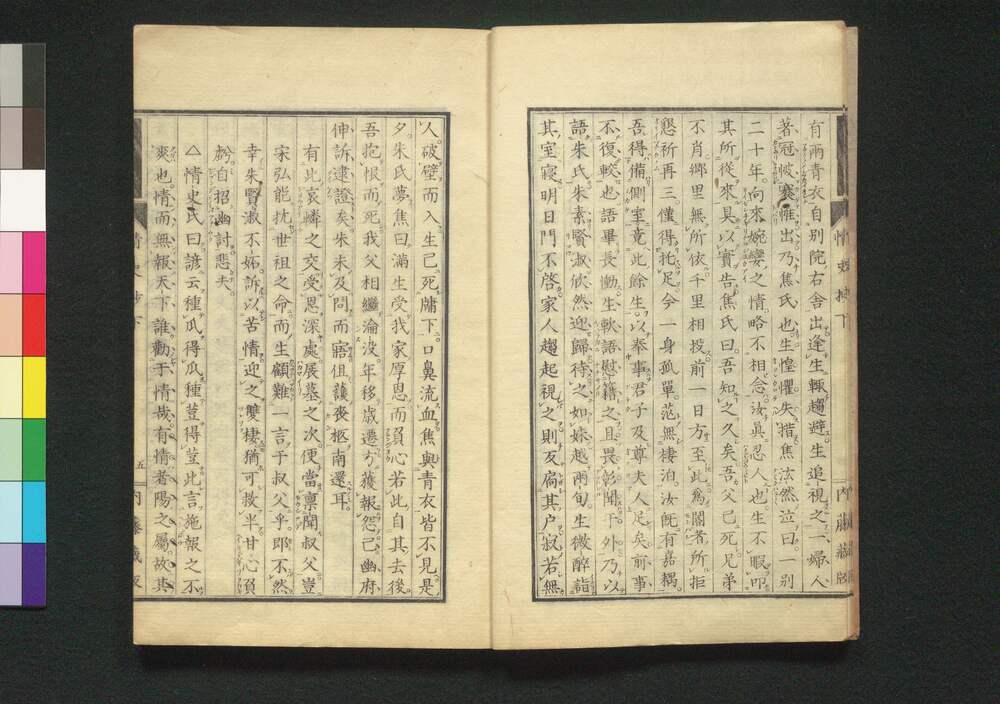 有兩青衣自別院右舍出逢生輒趨避生追視之一婦人
著冠帔褰帷出乃焦氏也生惶懼失措焦泫然泣曰一別
二十年向來婉孌之情略不相念汝眞忍人也生不暇叩
其所從來具以實告焦氏曰吾知之久矣吾父已死兄弟
不肖鄉里無所依千里相投前一日方至此爲閽者所拒
懇祈再三僅得托足今一身孤單茫無棲泊汝旣有嘉耦
吾得備側室竟此餘生以奉事君子及尊夫人足矣前事
不復較也語畢長慟生軟語慰藉之且畏彰聞于外乃以
語朱氏朱素賢淑欣然迎歸待之如妹越兩旬生微醉詣
其室寢明日門不啓家人趨起視之則反扃其户寂若無
情史抄下
內藤藏版
人破壁而入生已死牖下口鼻流血焦與青衣皆不見是
夕朱氏夢焦曰滿生受我家厚恩而負心若此自其去後
吾抱恨而死我父相繼淪沒年移歲遷方獲報怨已幽府
伸訴逮證矣朱未及問而寤但護喪柩南還耳
有此哀憐之交受恩深處展墓之次便當稟聞叔父豈
宋弘能抗世祖之命而生顧難一言于叔父乎卽不然
幸朱賢淑不妬訴以苦情迎之雙棲猶可救半甘心負
虧自招幽討悲夫
△情史氏曰諺云種瓜得瓜種荳得荳此言施報之不
爽也情而無報天下誰勸于情哉有情者陽之屬故其
情史抄下
五
內藤藏版